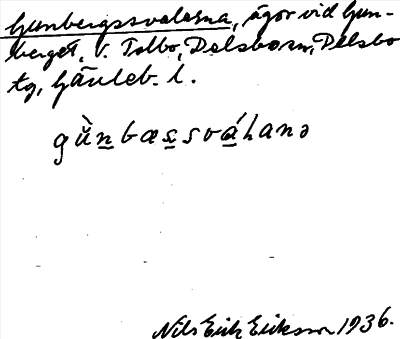 Ljunbergssvalarna, ägor vid Ljun-
berget, V. Tolbo, Delsbo sn, Delsbo
tg, Gävleb. l.
gùn̲bæs̲sová̲lanə
Nils Erik Eriksson 1936.